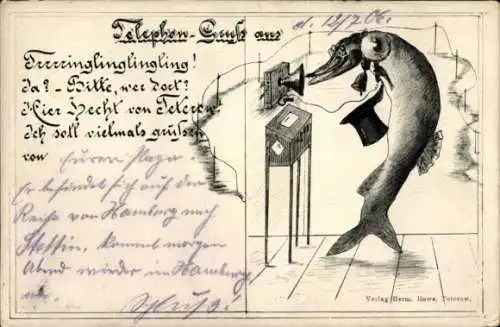 Telephon-Gruß aus
d. 12/7 06.
Trrrringlinglingling!
Ja? - Bitte, wer dort?
Hier Hecht von Teterow
Ich soll vielmals grüßen
von Eurem Papa.
Er befindet sich auf der
Reise von Hamburg nach
Stettin, kommt morgen
Abend wieder in Hamburg
Schluß!
Verlag Herm. Hawe, Teterow.